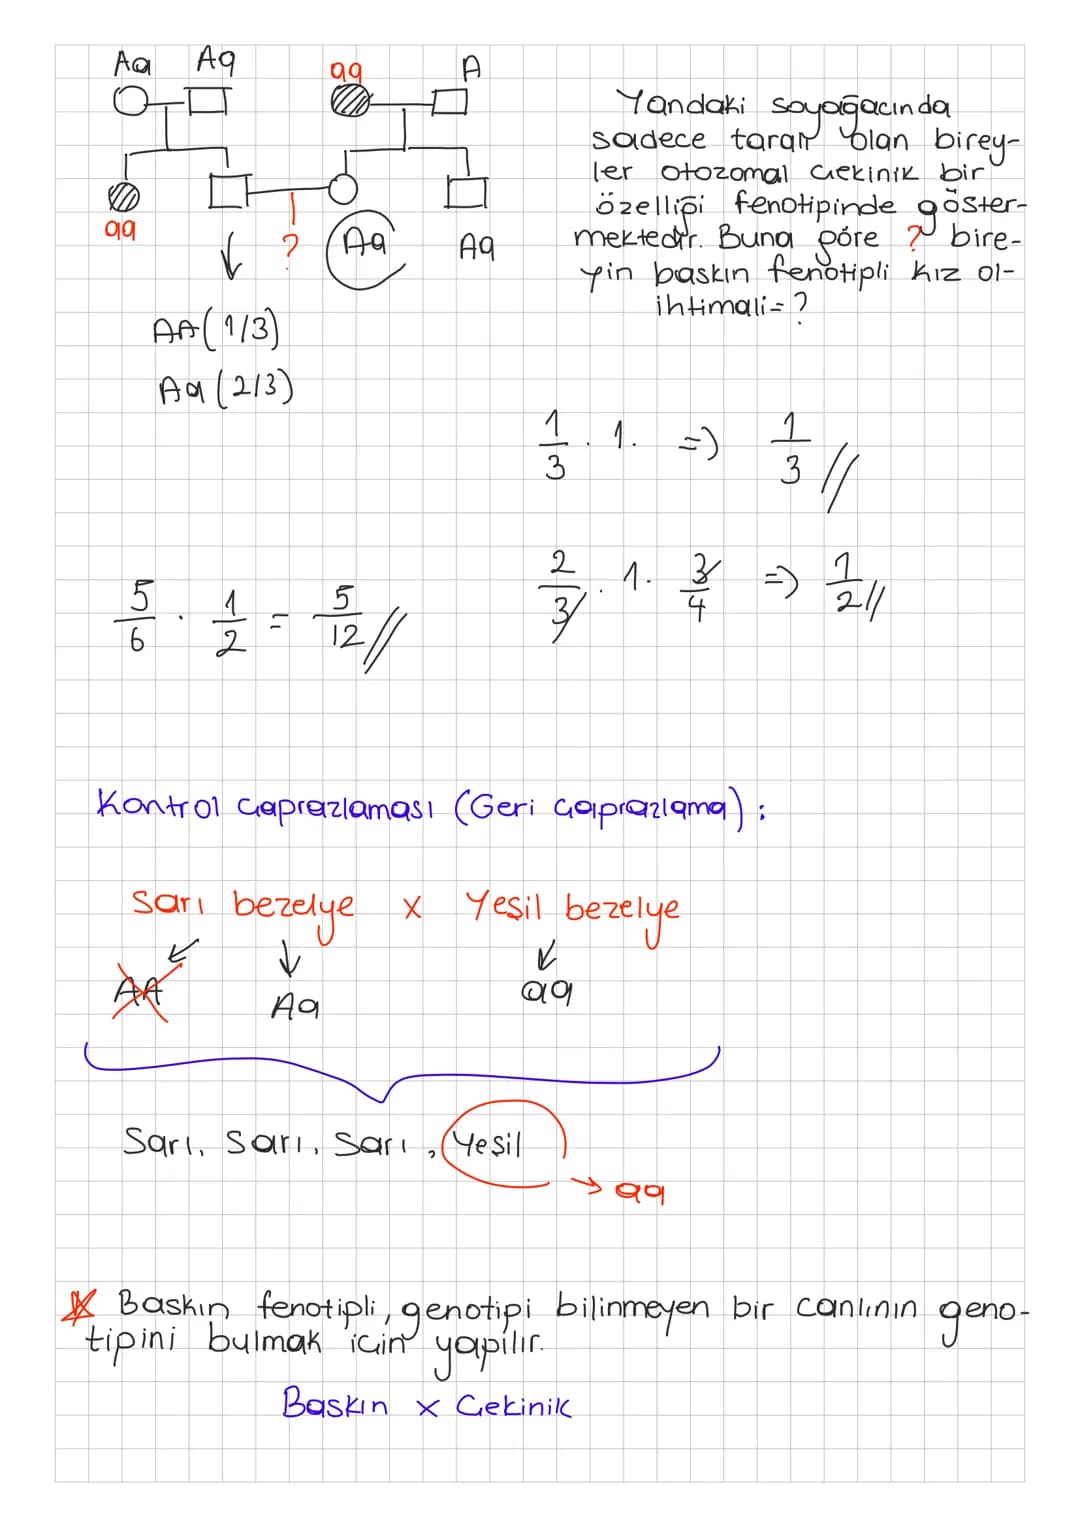 Aa Aa aa A
Yandaki soyağacında
sadece taralı olan birey-
ler otozomal çekinik bir
özelliği fenotipinde göster-
mektedir. Buna göre ? bire-
yin baskın fenotipli kız ol-
ihtimali = ?
aa ? Aa Aa
AA (1/3)
Aa (2/3)
1/3 . 1. => 1/3 //
2/3 . 1. 3/4 => 1/2 //
5/6 . 1/2 = 5/12 //
Kontrol Çaprazlaması (Geri Çaprazlama) :
Sarı bezelye x Yeşil bezelye
AA Aa aa
Sarı, Sarı, Sarı, Yeşil
→ aa
Baskın fenotipli, genotipi bilinmeyen bir canlının geno-
tipini bulmak için yapılır.
Baskın x Çekinik